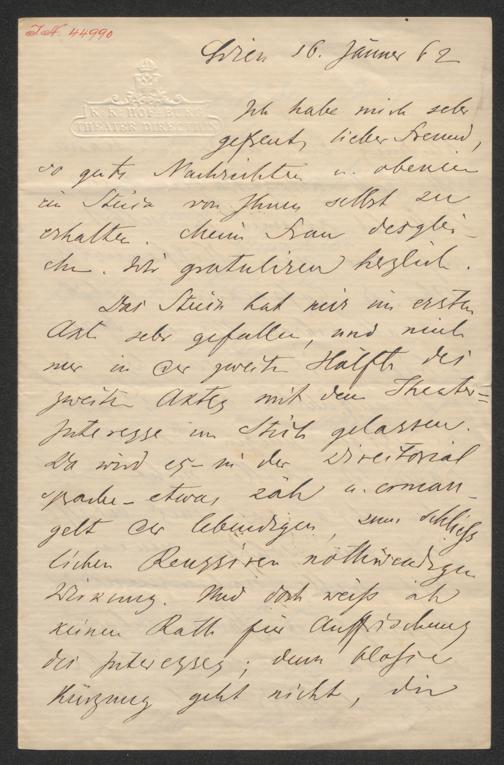 I.N. 44990
Wien 16. Jänner 62
K. K. HOF-BURG
THEATER DIRECTION
Ich habe mich sehr
gefreut, lieber Freund,
so gute Nachrichten u. obenein
ein Stück von Ihnen selbst zu
erhalten. Meine Frau desglei-
chen. Wir gratuliren herzlich.
Das Stück hat mir im ersten
Akt sehr gefallen, und mich
nur in der zweiten Hälfte des
zweiten Aktes mit dem Theater=
Interesse im Stich gelassen.
Da wird es – in der Directorial
sprache – etwas zäh u. erman-
gelt der lebendigen, zum schließ
lichen Reussiren nothwendigen
Wirkung. Und doch weiß ich
keinen Rath für Auffrischung
des Interesses; denn bloße
Kürzung geht nicht, die